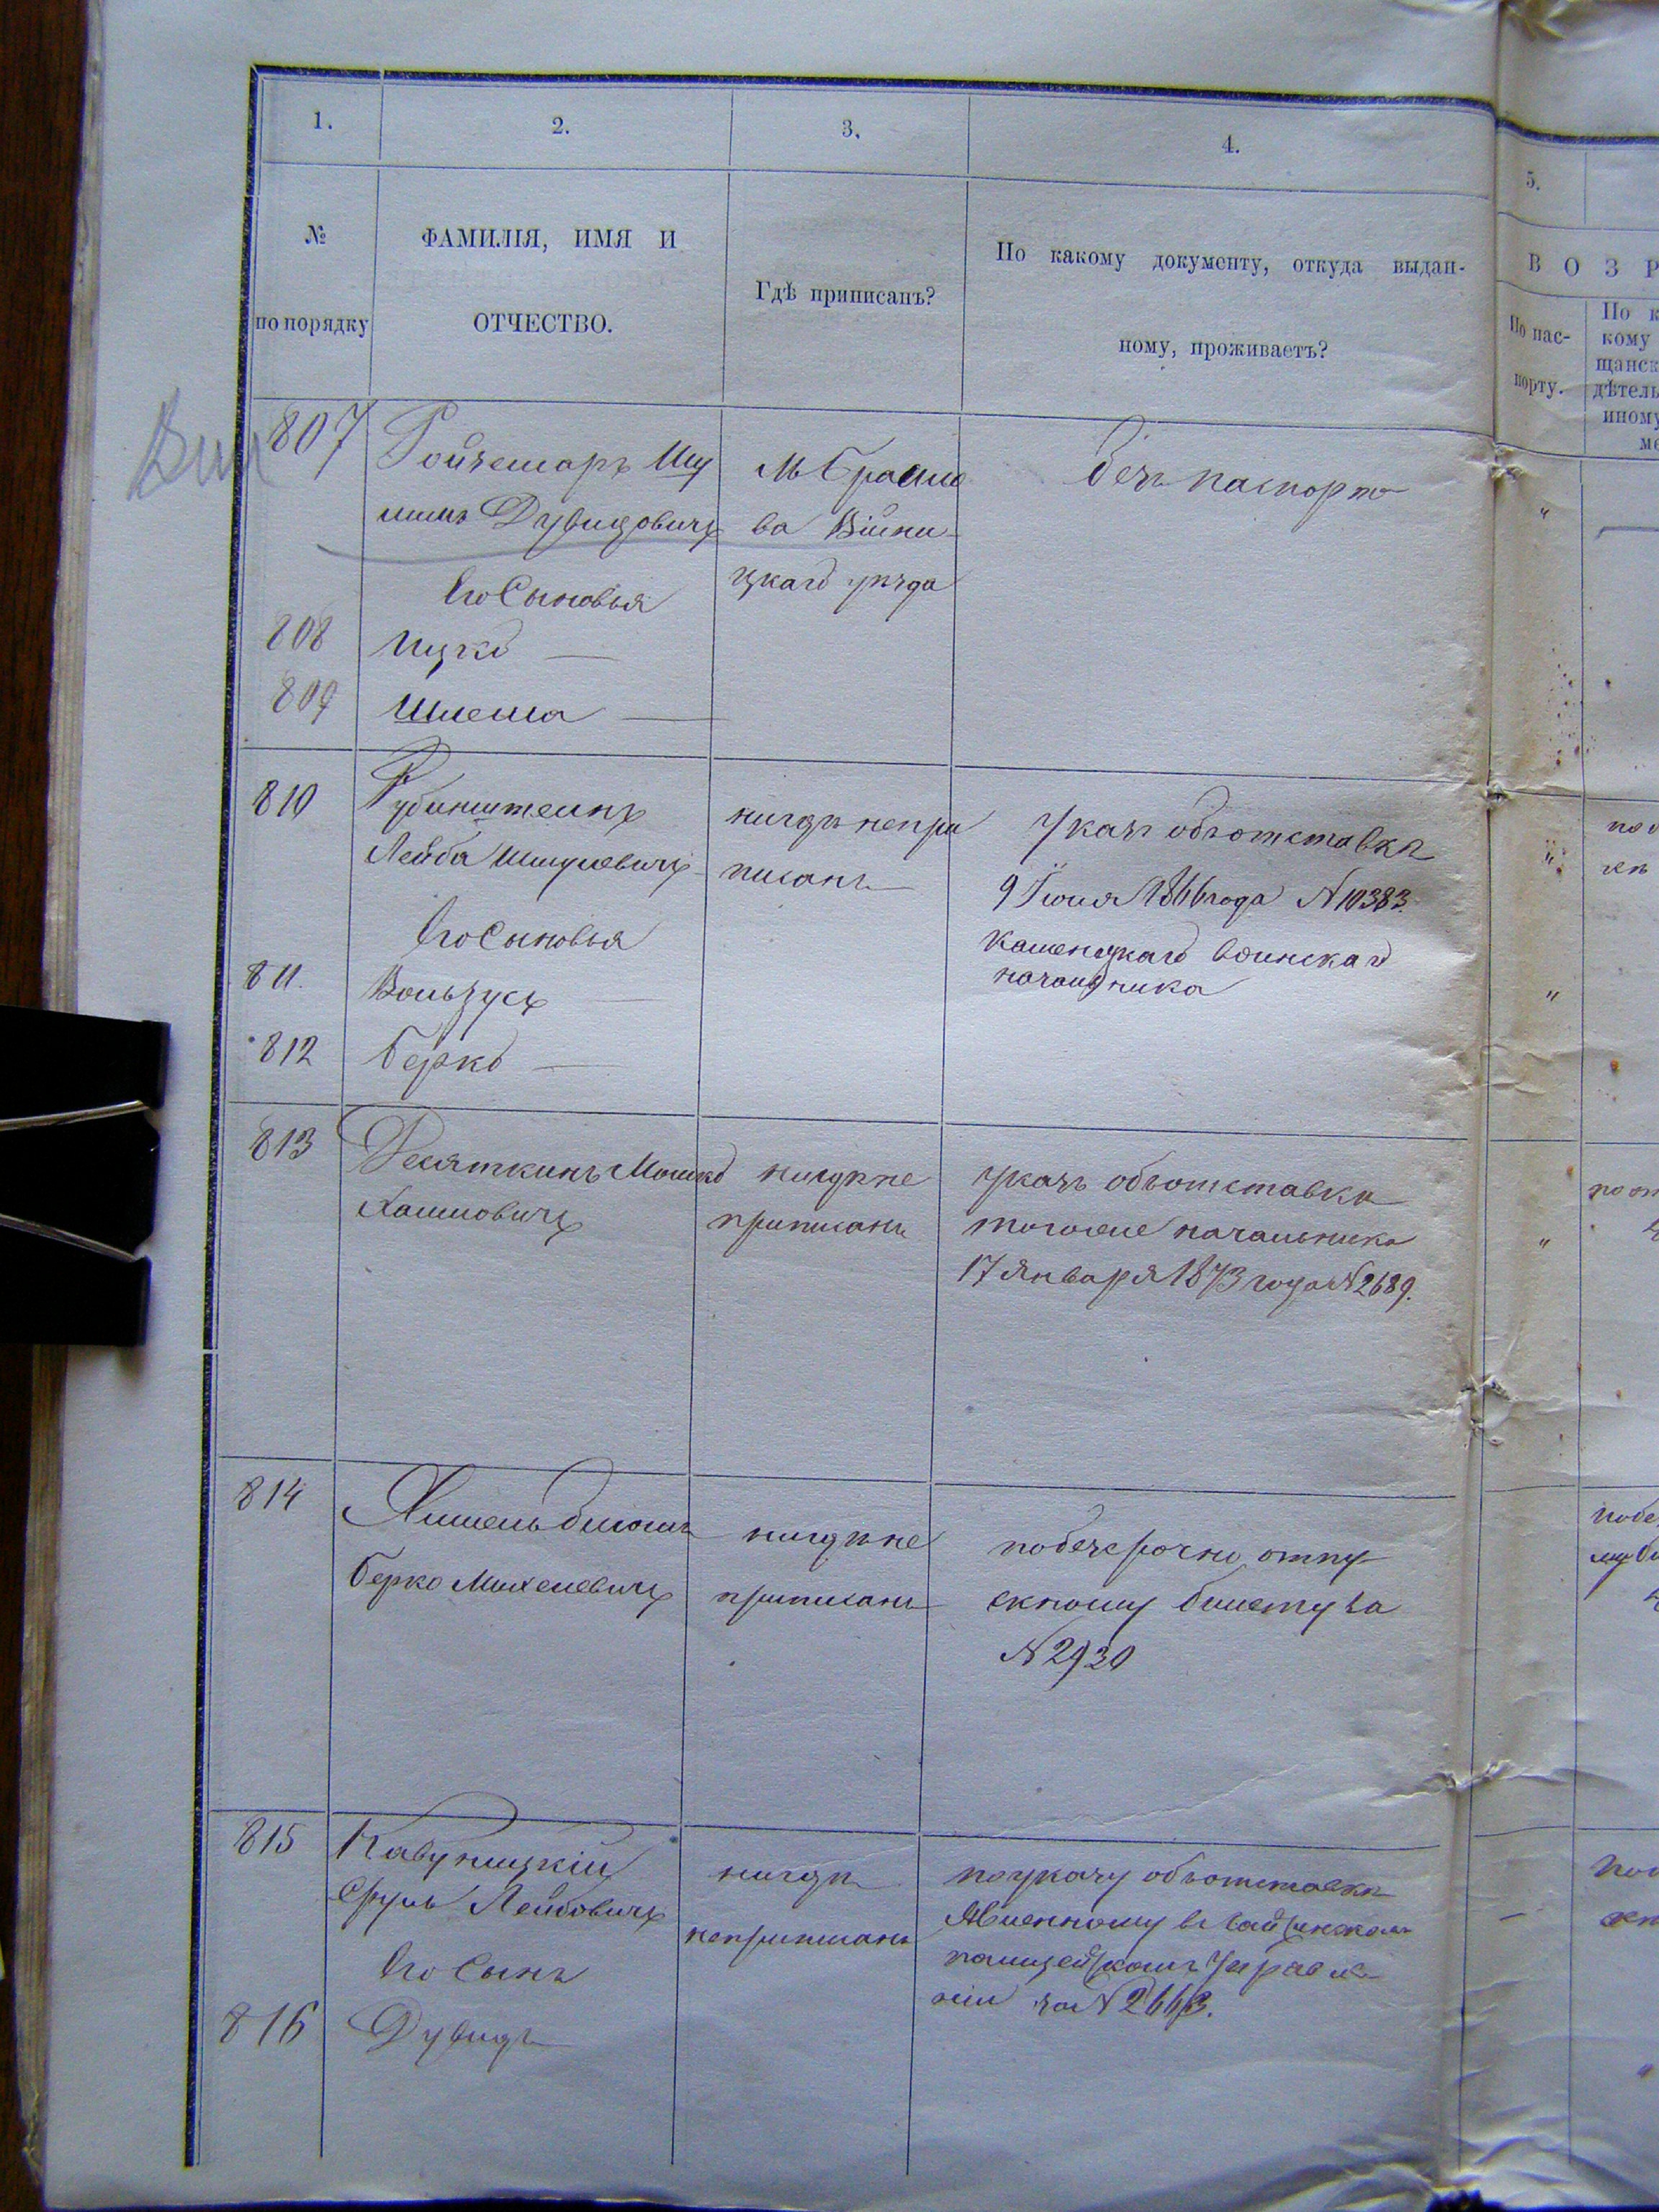 1. 2. 3. 4. 5.
№
по порядку
ФАМИЛІЯ, ИМЯ И
ОТЧЕСТВО.
Гдѣ приписанъ?
По какому документу, откуда выдан-
ному, проживаетъ?
В О З Р
По пас-
порту.
По к
кому
щанск
дѣтель
иному
ме
807
Ройземаръ Шу
лимъ Дувидовичъ
М Браило
ва Винни
цкаго уѣзда
безъ паспорта
Его Сыновья
808 Ицко —
809 Шлема —
810 Рубинштеинъ
Лейба Шмулевичъ
нигдѣ непри
писанъ
Указъ объотставкѣ
9 Іюля 1866 года № 10383.
Каменецкаго воинскаго
начальника
Его Сыновья
811. Вольгусъ —
812 Берко —
813 Десяткинъ Мошко
Хаимовичъ
нигдѣ не
приписанъ
Указъ объотставки
тогоже начальника
17 Января 1873 года № 2689.
814
Берко Михелевичъ
нигдѣ не
приписанъ
побезсрочно отпу
скному билету за
№ 2930
815 Кавуницкій
Сруль Лейбовичъ
нигдѣ
неприписанъ
поуказу объотставкѣ
явленному въ Гайсинском
полицейскомъ Управле
ніи за №
Его Сынъ
816 Дувидъ